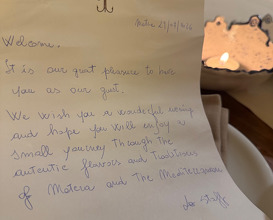 Welcome.
It is our great pleasure to have
you as our guest.
We wish you a wonderful evening
and hope you will enjoy a
small journey through the
autentic flavors and traditions
of Matera and the Mediterranean
Lo Staff